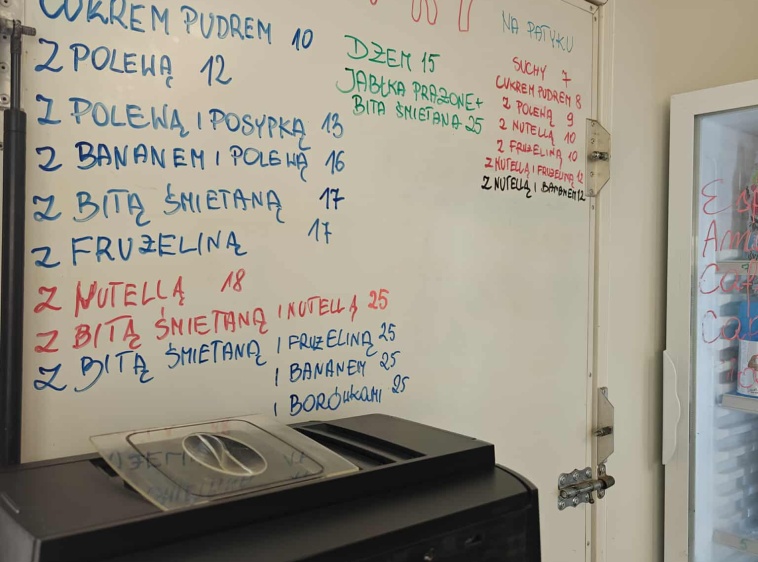 CUKREM PUDREM 10
Z POLEWĄ 12
Z POLEWĄ I POSYPKĄ 13
Z BANANEM I POLEWĄ 16
Z BITĄ ŚMIETANĄ 17
Z FRUŻELINĄ 17
Z NUTELLĄ 18
Z BITĄ ŚMIETANĄ I NUTELLĄ 25
Z BITĄ ŚMIETANĄ I FRUŻELINĄ 25
I BANANEM 25
I BORÓWKAMI 25
DŻEM 15
JABŁKA PRAŻONE+
BITA ŚMIETANA 25
NA PATYKU
SUCHY 7
CUKREM PUDREM 8
Z POLEWĄ 9
Z NUTELLĄ 10
Z FRUŻELINĄ 10
Z NUTELLĄ I FRUŻELINĄ 12
Z NUTELLĄ I BANANEM 12